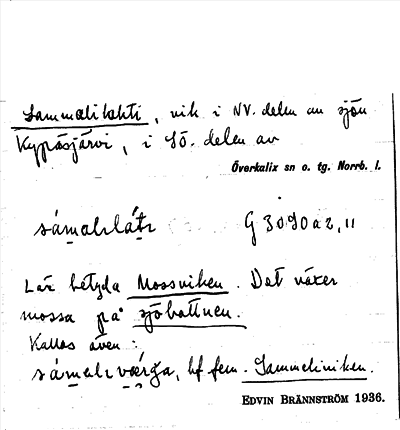 Sammalilahti, vik i NV. delen av sjön
Kypäsjärvi, i SÖ. delen av
Överkalix sn o. tg. Norrb. l.
G 3090a2, 11
Lär betyda Mossviken. Det växer
mossa på sjöbottnen.
Kallas även:
bf fem. Sammeliviken.
EDVIN BRÄNNSTRÖM 1936.